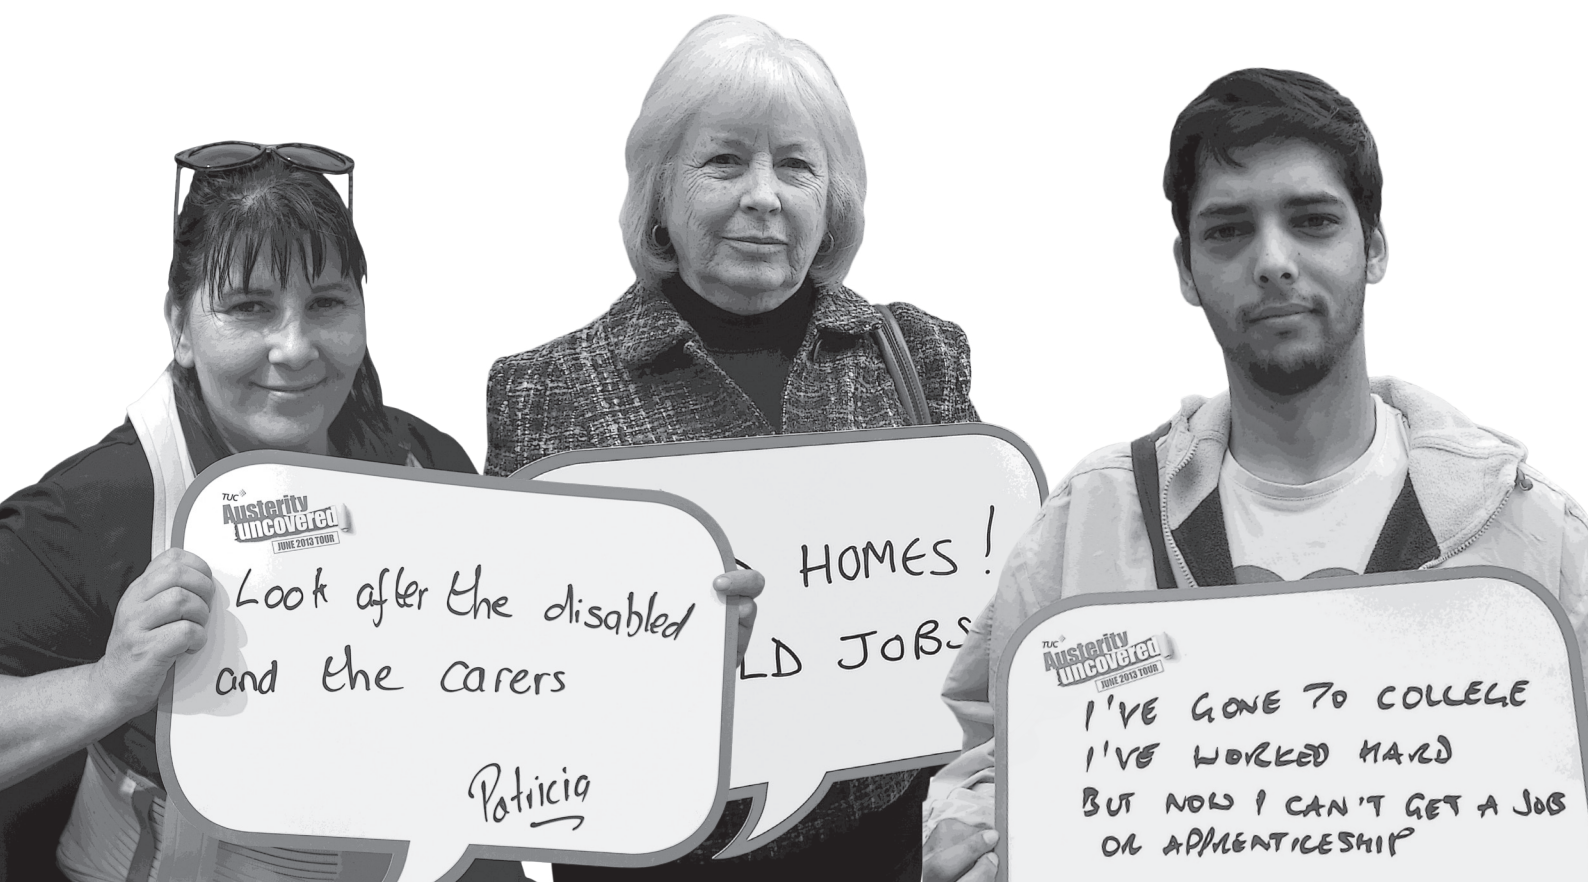 TUC
Austerity
uncovered
JUNE 2013 TOUR
Look after the disabled
and the carers
Patricia
HOMES!
LD JOBS
TUC
Austerity
uncovered
JUNE 2013 TOUR
I'VE GONE TO COLLEGE
I'VE WORKED HARD
BUT NOW I CAN'T GET A JOB
OR APPRENTICESHIP